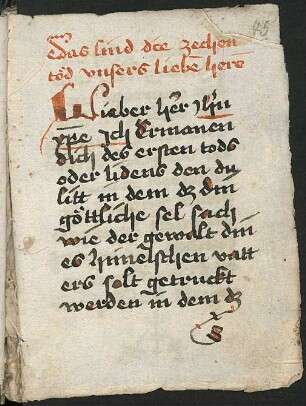 das sind die zechen
tod unsers liebe here
Lieber her ihu
xpe Ich Ermanen
dich des ersten tods
oder lidens den du
litt in dem dz din
göttliche sel sach
wie der gewalt din
es himelschen vatt
ers solt getruckt
werden in dem dz